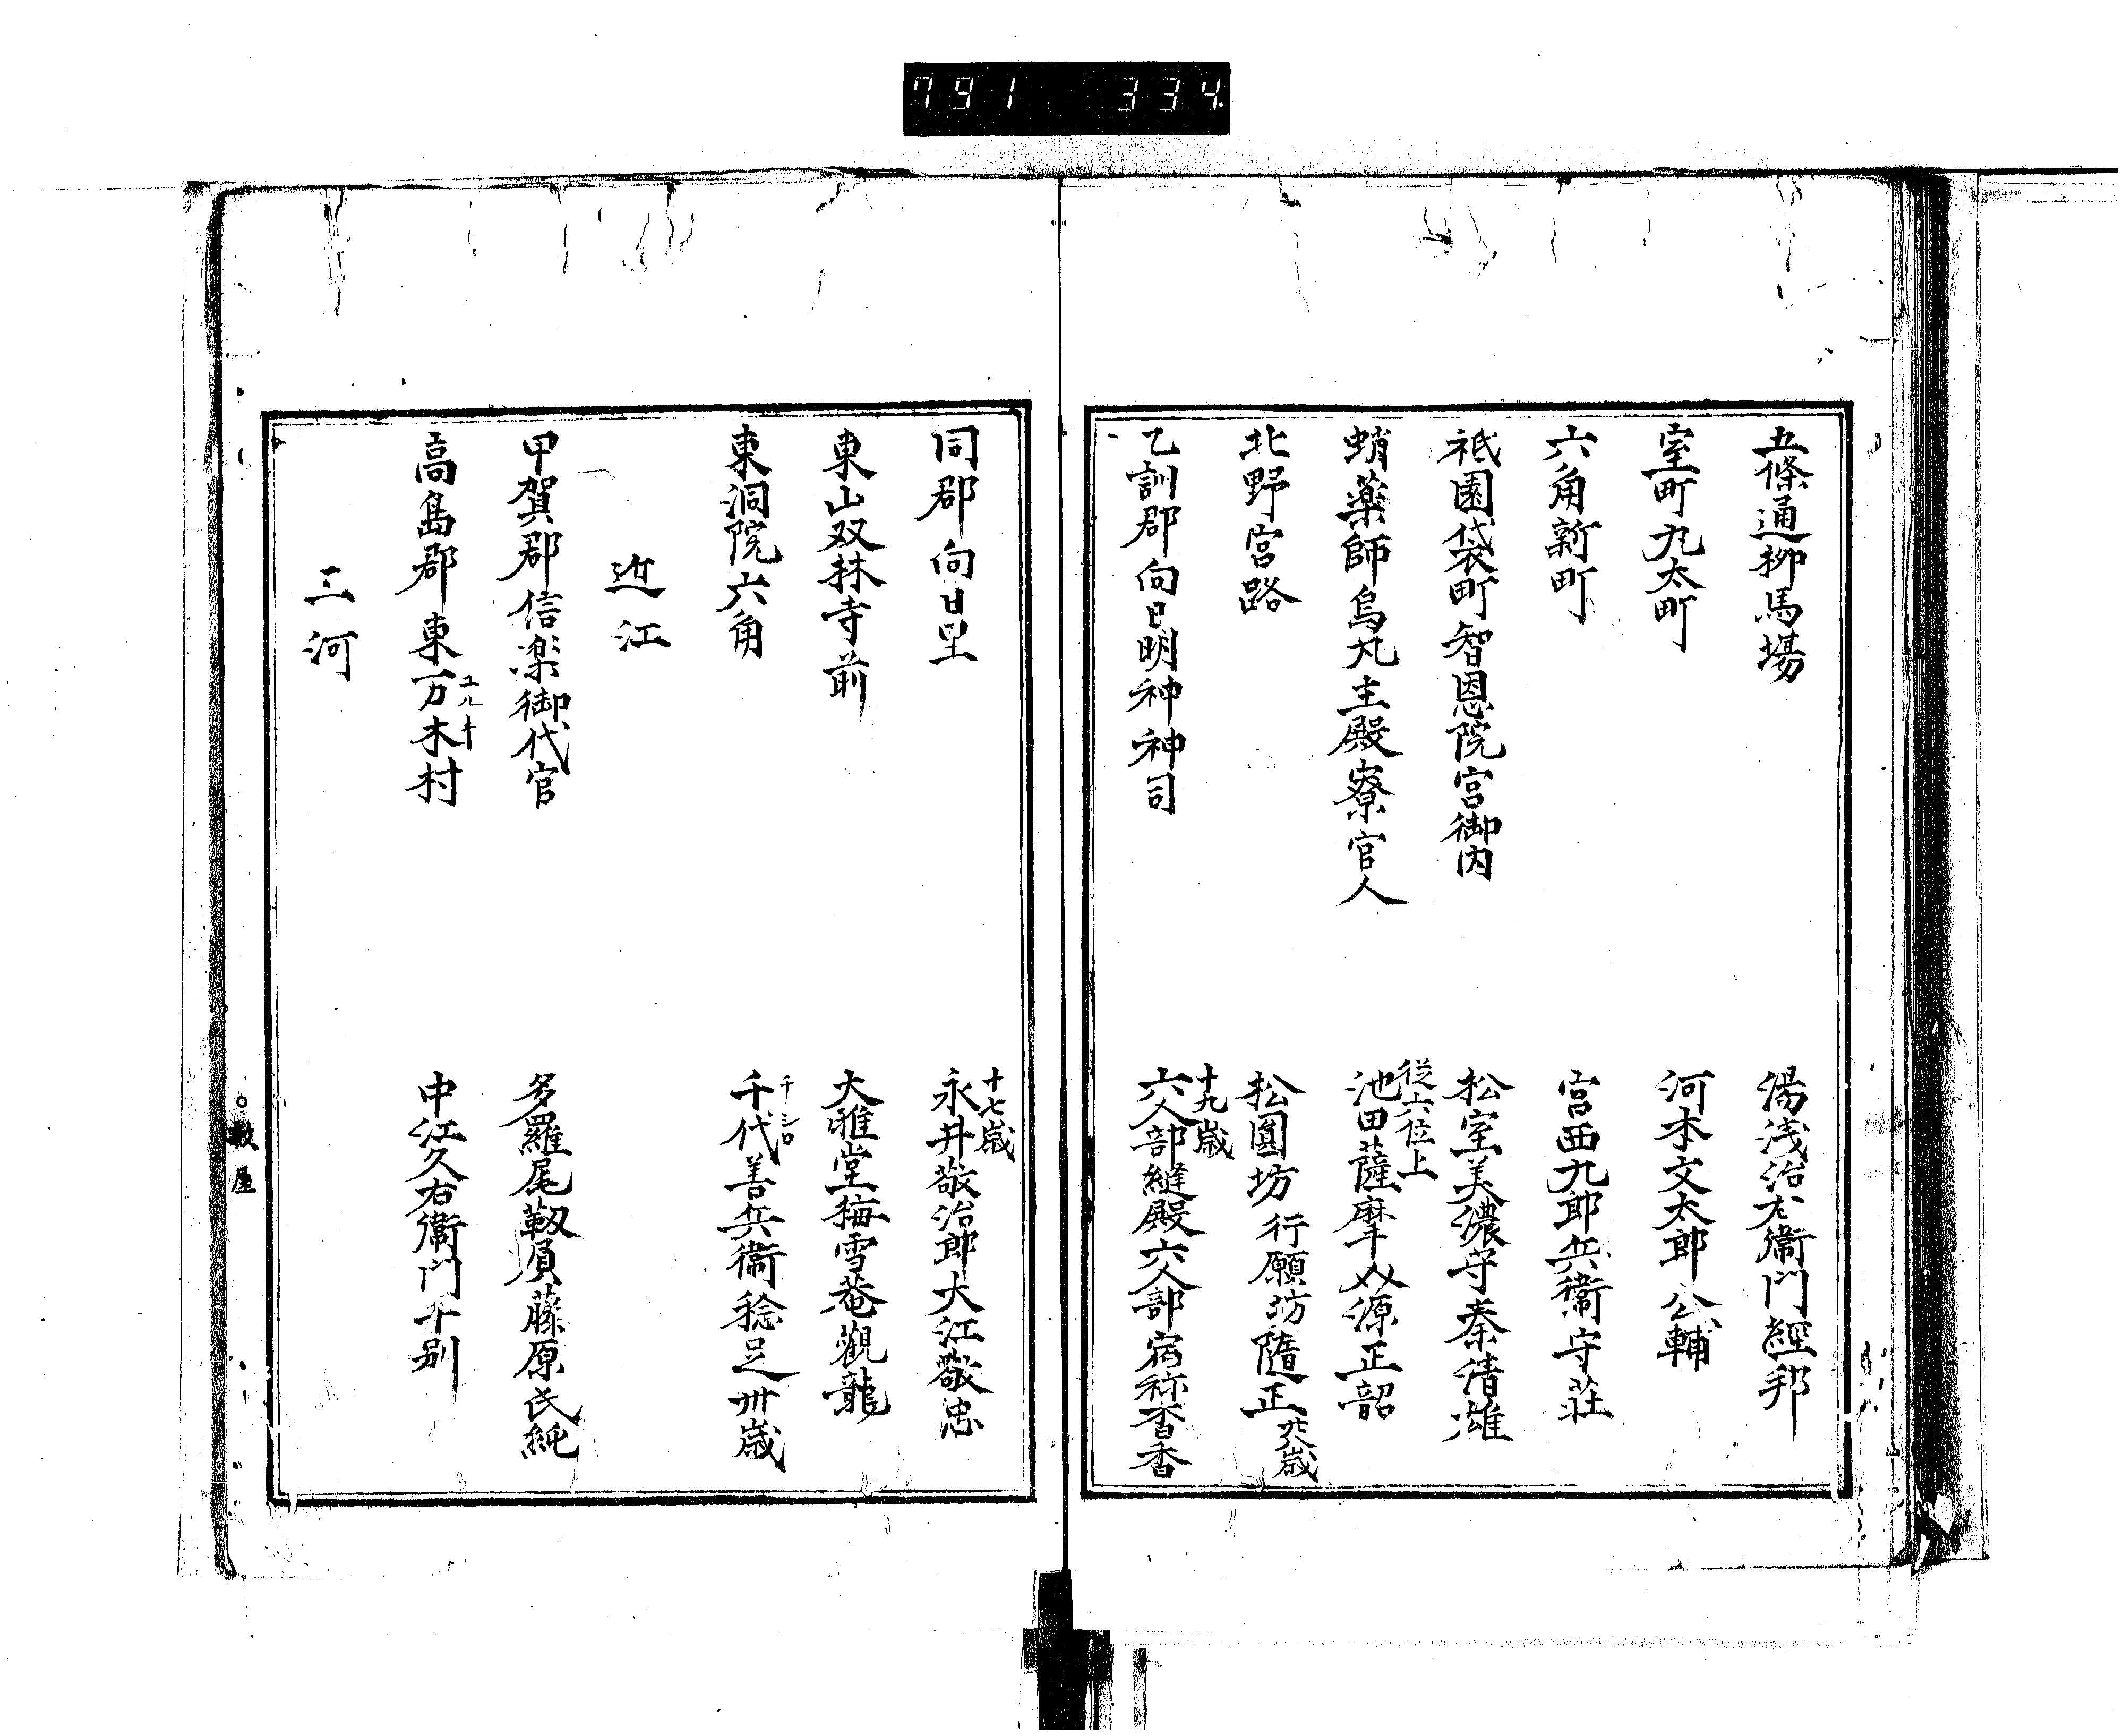 791 334
五條通柳馬場 湯浅治左衞門經邦
室町丸太町 河本文太郎公輔
六角新町 宮西九郎兵衞守莊
祇園袋町智恩院宮御内 松室美濃守秦清雄
蛸薬師烏丸主殿寮官人 從六位上 池田薩摩 源正韶
北野宮路 松圓坊行願坊隨正 歳
乙訓郡向日明神神司 十九歳 六人部縫殿六人部宿祢香
同郡向日里 十七歳 永井敬治郎大江敬忠
東山双林寺前 大雅堂梅雪菴觀龍
東洞院六角 千代善兵衞稔足卅歳
近江
甲賀郡信楽御代官 多羅尾靱負藤原氏純
高島郡東万木村 中江久右衞門千别
三河
屋